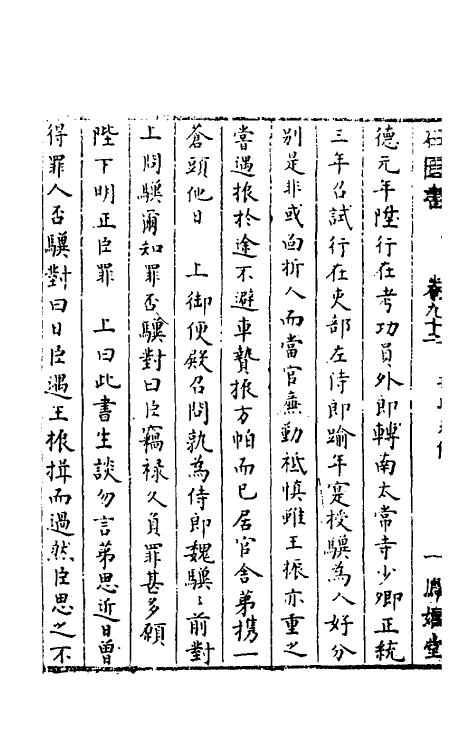 石匱書 卷九十二 一 鳳嬉堂
德元年陞行在考功員外郎轉南太常寺少卿正統
三年召試行在吏部左侍郎踰年寔授驥為人好分
別是非或面折人而當官廉勤祗慎雖王振亦重之
嘗遇振於途不避車贄振方帕而已居官舍苐携一
蒼頭他日 上御便殿召問孰為侍郎魏驥〻前對
上問驥爾知罪否驥對曰臣竊祿久負罪甚多願
陛下明正臣罪 上曰此書生談勿言苐思近日曾
得罪人否驥對曰日臣遇王振揖而過然臣思之不